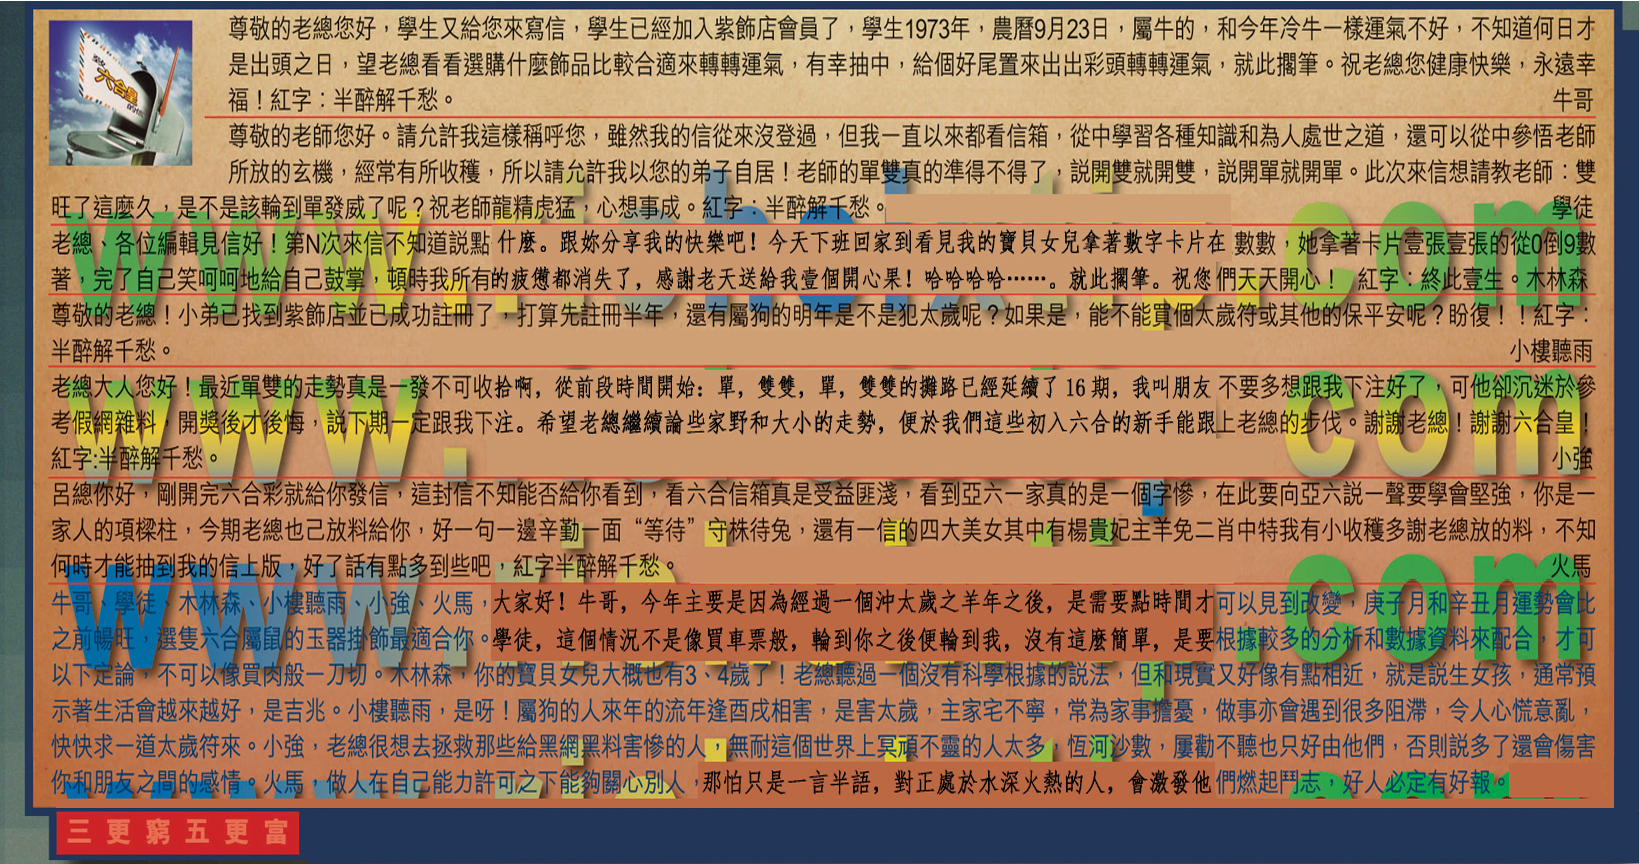 尊敬的老總您好，學生又給您來寫信，學生已經加入紫飾店會員了，學生1973年，農曆9月23日，屬牛的，和今年冷牛一樣運氣不好，不知道何日才
是出頭之日，望老總看看選購什麼飾品比較合適來轉轉運氣，有幸抽中，給個好尾置來出出彩頭轉轉運氣，就此擱筆。祝老總您健康快樂，永遠幸
福！紅字：半醉解千愁。 牛哥
六合皇
尊敬的老師您好。請允許我這樣稱呼您，雖然我的信從來沒登過，但我一直以來都看信箱，從中學習各種知識和為人處世之道，還可以從中參悟老師
所放的玄機，經常有所收穫，所以請允許我以您的弟子自居！老師的單雙真的準得不得了，説開雙就開雙，説開單就開單。此次來信想請教老師：雙
旺了這麼久，是不是該輪到單發威了呢？祝老師龍精虎猛，心想事成。紅字：半醉解千愁。 學徒
老總、各位編輯見信好！第N次來信不知道説點什麼。跟妳分享我的快樂吧！今天下班回家到看見我的寶貝女兒拿著數字卡片在數數，她拿著卡片壹張壹張的從0倒9數
著，完了自己笑呵呵地給自己鼓掌，頓時我所有的疲憊都消失了，感謝老天送給我壹個開心果！哈哈哈哈……。就此擱筆。祝您們天天開心！ 紅字：終此壹生。木林森
尊敬的老總！小弟已找到紫飾店並已成功註冊了，打算先註冊半年，還有屬狗的明年是不是犯太歲呢？如果是，能不能買個太歲符或其他的保平安呢？盼復！！紅字：
半醉解千愁。 小樓聽雨
老總大人您好！最近單雙的走勢真是一發不可收拾啊，從前段時間開始：單，雙雙，單，雙雙的攤路已經延續了16期，我叫朋友不要多想跟我下注好了，可他卻沉迷於參
考假網雜料，開獎後才後悔，説下期一定跟我下注。希望老總繼續論些家野和大小的走勢，便於我們這些初入六合的新手能跟上老總的步伐。謝謝老總！謝謝六合皇！
紅字:半醉解千愁。 小強
呂總你好，剛開完六合彩就給你發信，這封信不知能否給你看到，看六合信箱真是受益匪淺，看到亞六一家真的是一個字慘，在此要向亞六説一聲要學會堅強，你是一
家人的項樑柱，今期老總也己放料給你，好一句一邊辛勤一面“等待”守株待兔，還有一信的四大美女其中有楊貴妃主羊免二肖中特我有小收穫多謝老總放的料，不知
何時才能抽到我的信上版，好了話有點多到些吧，紅字半醉解千愁。 火馬
牛哥、學徒、木林森、小樓聽雨、小強、火馬，大家好！牛哥，今年主要是因為經過一個沖太歲之羊年之後，是需要點時間才可以見到改變，庚子月和辛丑月運勢會比
之前暢旺，選隻六合屬鼠的玉器掛飾最適合你。學徒，這個情況不是像買車票般，輪到你之後便輪到我，沒有這麼簡單，是要根據較多的分析和數據資料來配合，才可
以下定論，不可以像買肉般一刀切。木林森，你的寶貝女兒大概也有3、4歲了！老總聽過一個沒有科學根據的説法，但和現實又好像有點相近，就是説生女孩，通常預
示著生活會越來越好，是吉兆。小樓聽雨，是呀！屬狗的人來年的流年逢酉戌相害，是害太歲，主家宅不寧，常為家事擔憂，做事亦會遇到很多阻滯，令人心慌意亂，
快快求一道太歲符來。小強，老總很想去拯救那些給黑網黑料害慘的人，無耐這個世界上冥頑不靈的人太多，恆河沙數，屢勸不聽也只好由他們，否則説多了還會傷害
你和朋友之間的感情。火馬，做人在自己能力許可之下能夠關心別人，那怕只是一言半語，對正處於水深火熱的人，會激發他們燃起鬥志，好人必定有好報。
三更窮五更富